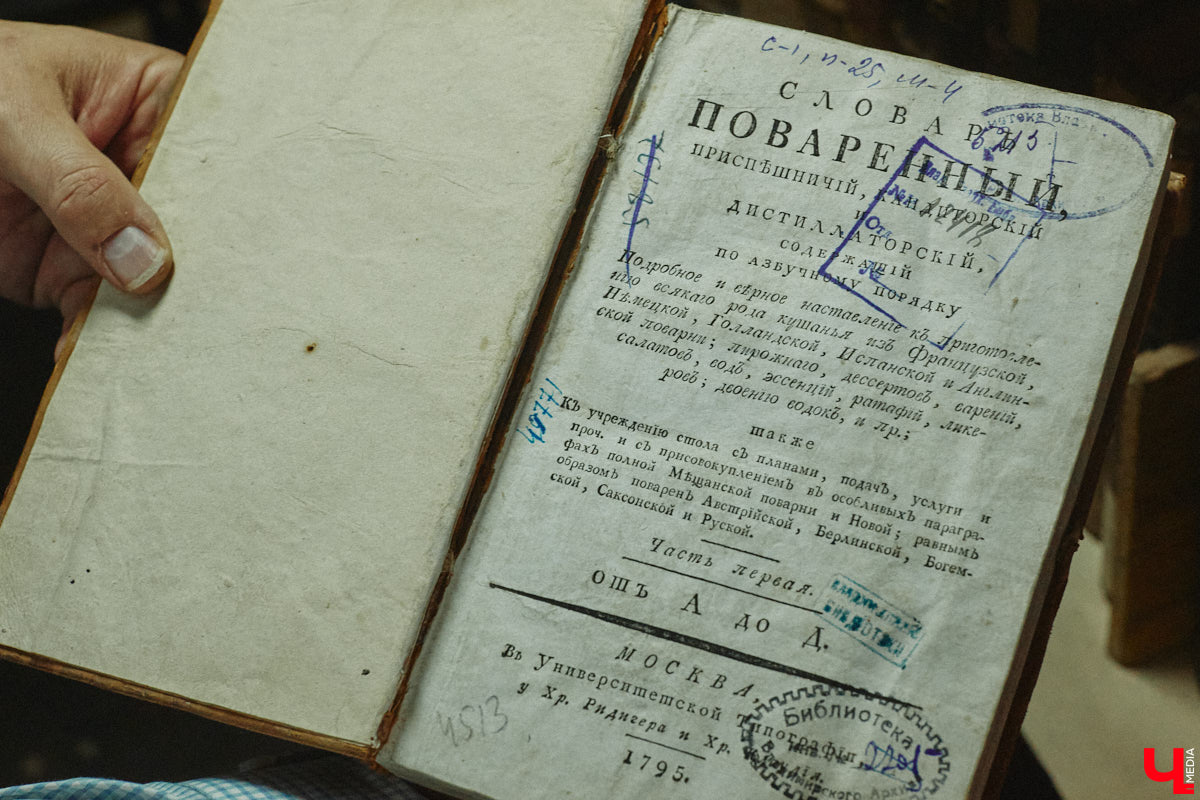 с-1, п-25, ш-4
СЛОВАРЬ
ПОВАРЕННЫЙ,
ПРИСПѢШНИЧІЙ, КАНДИТОРСКІЙ
И
ДИСТИЛЛАТОРСКІЙ,
СОДЕРЖАЩІЙ
ПО АЗБУЧНОМУ ПОРЯДКУ
Подробное и вѣрное наставленіе къ приготовле-
нію всякаго рода кушанья изъ Французской,
Нѣмецкой, Голландской, Испанской и Англин-
ской поварни; пирожнаго, дессертовъ, вареній,
салатовъ, водъ, эссенцій, ратафій, лике-
ровъ; двоенію водокъ, и пр.;
также
Къ учрежденію стола съ планами, подачъ, услуги и
проч. и съ присовокупленіемъ въ особливыхъ парагра-
фахъ полной Мѣщанской поварни и Новой; равнымъ
образомъ поваренъ Австрійской, Берлинской, Богем-
ской, Саксонской и Руской.
Часть первая.
отъ А до Д.
МОСКВА,
Въ Университетской Типографіи,
у Хр. Ридигера и Хр.
1795.
48771
4513
Библиотека
Владимирского Архи
Ч
MEDIA